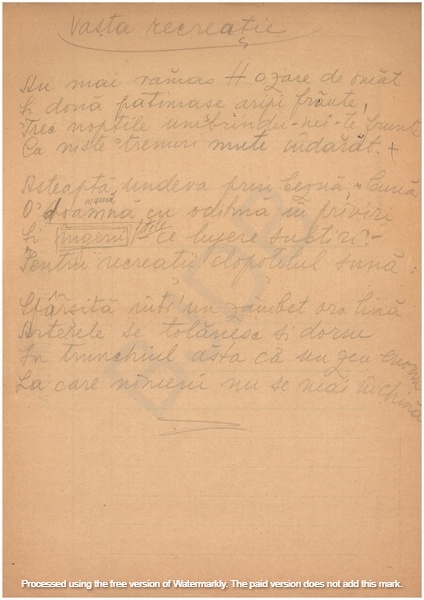 Vasta recreație
Au mai rămas # o zare de omăt
Și două patimase aripi frânte,
Trec nopțile umbrindu-ne-te frunte
Ca niste tremuri mute îndărăt. +
Asteaptă undeva prin ceață, + Lună
O doamnă cu odihna în priviri
Și ingeri ce lujere subțiri!-
Pentru recreatii clopotelul sună :
Sfârsită intr'un zâmbet ora lină
Arterele se tolănesc si dorm
In trunchiul ăsta ca un zeu enorm
La care nimeni nu se mai închină
Processed using the free version of Watermarkly. The paid version does not add this mark.